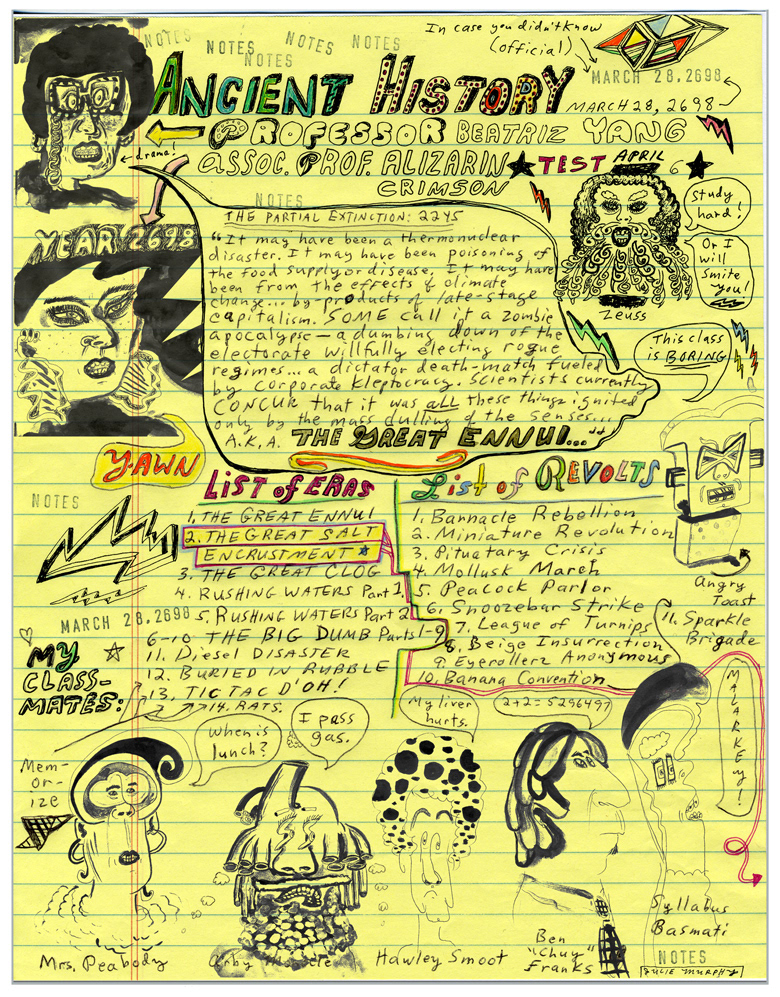 In case you didn't know
(official)
NOTES NOTES NOTES NOTES
NOTES
MARCH 28, 2698
ANCIENT HISTORY
MARCH 28, 2698
PROFESSOR BEATRIZ YANG
drama!
ASSOC. PROF. ALIZARIN
CRIMSON
TEST APRIL 6
NOTES
Study
hard!
Or I
will
smite
you!
Zeuss
YEAR 2698
THE PARTIAL EXTINCTION: 2245
"It may have been a thermonuclear
disaster. It may have been poisoning of
the food supply or disease. It may have
been from the effects of climate
change... by-products of late-stage
capitalism. SOME call it a zombie
apocalypse—a dumbing down of the
electorate willfully electing rogue
regimes... a dictator death-match fueled
by corporate kleptocracy. Scientists currently
CONCUR that it was all these things ignited
only by the mass dulling of the senses...
A.K.A. THE GREAT ENNUI..."
This class
is BORING
YAWN
NOTES
LIST of ERAS
1. THE GREAT ENNUI
2. THE GREAT SALT
ENCRUSTMENT
3. THE GREAT CLOG
4. RUSHING WATERS Part 1
5. RUSHING WATERS Part 2
6-10 THE BIG DUMB Parts 1-9
11. Diesel DISASTER
12. BURIED IN RUBBLE
13. TIC TAC D'OH!
14. RATS.
List of REVOLTS
1. Barnacle Rebellion
2. Miniature Revolution
3. Pituatary Crisis
4. Mollusk March
5. Peacock Parlor
6. Snoozebar Strike
7. League of Turnips
8. Beige Insurrection
9. Eyerollerz Anonymous
10. Banana Convention
11. Sparkle
Brigade
Angry
Toast
MARCH 28, 2698
MY
CLASS-
MATES:
Mem-
or-
ize
When is
lunch?
I pass
gas.
My liver
hurts.
2+2=5296497
MALARKEY!
Mrs. Peabody
Arby
Hawley Smoot
Ben
"Chuy"
Franks
Syllabus
Basmati
NOTES
JULIE MURPHY